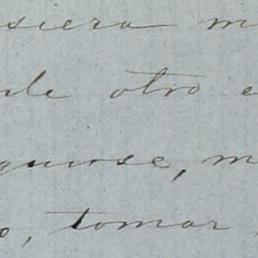 siera m
de otro e
guirse, m
o, tomar